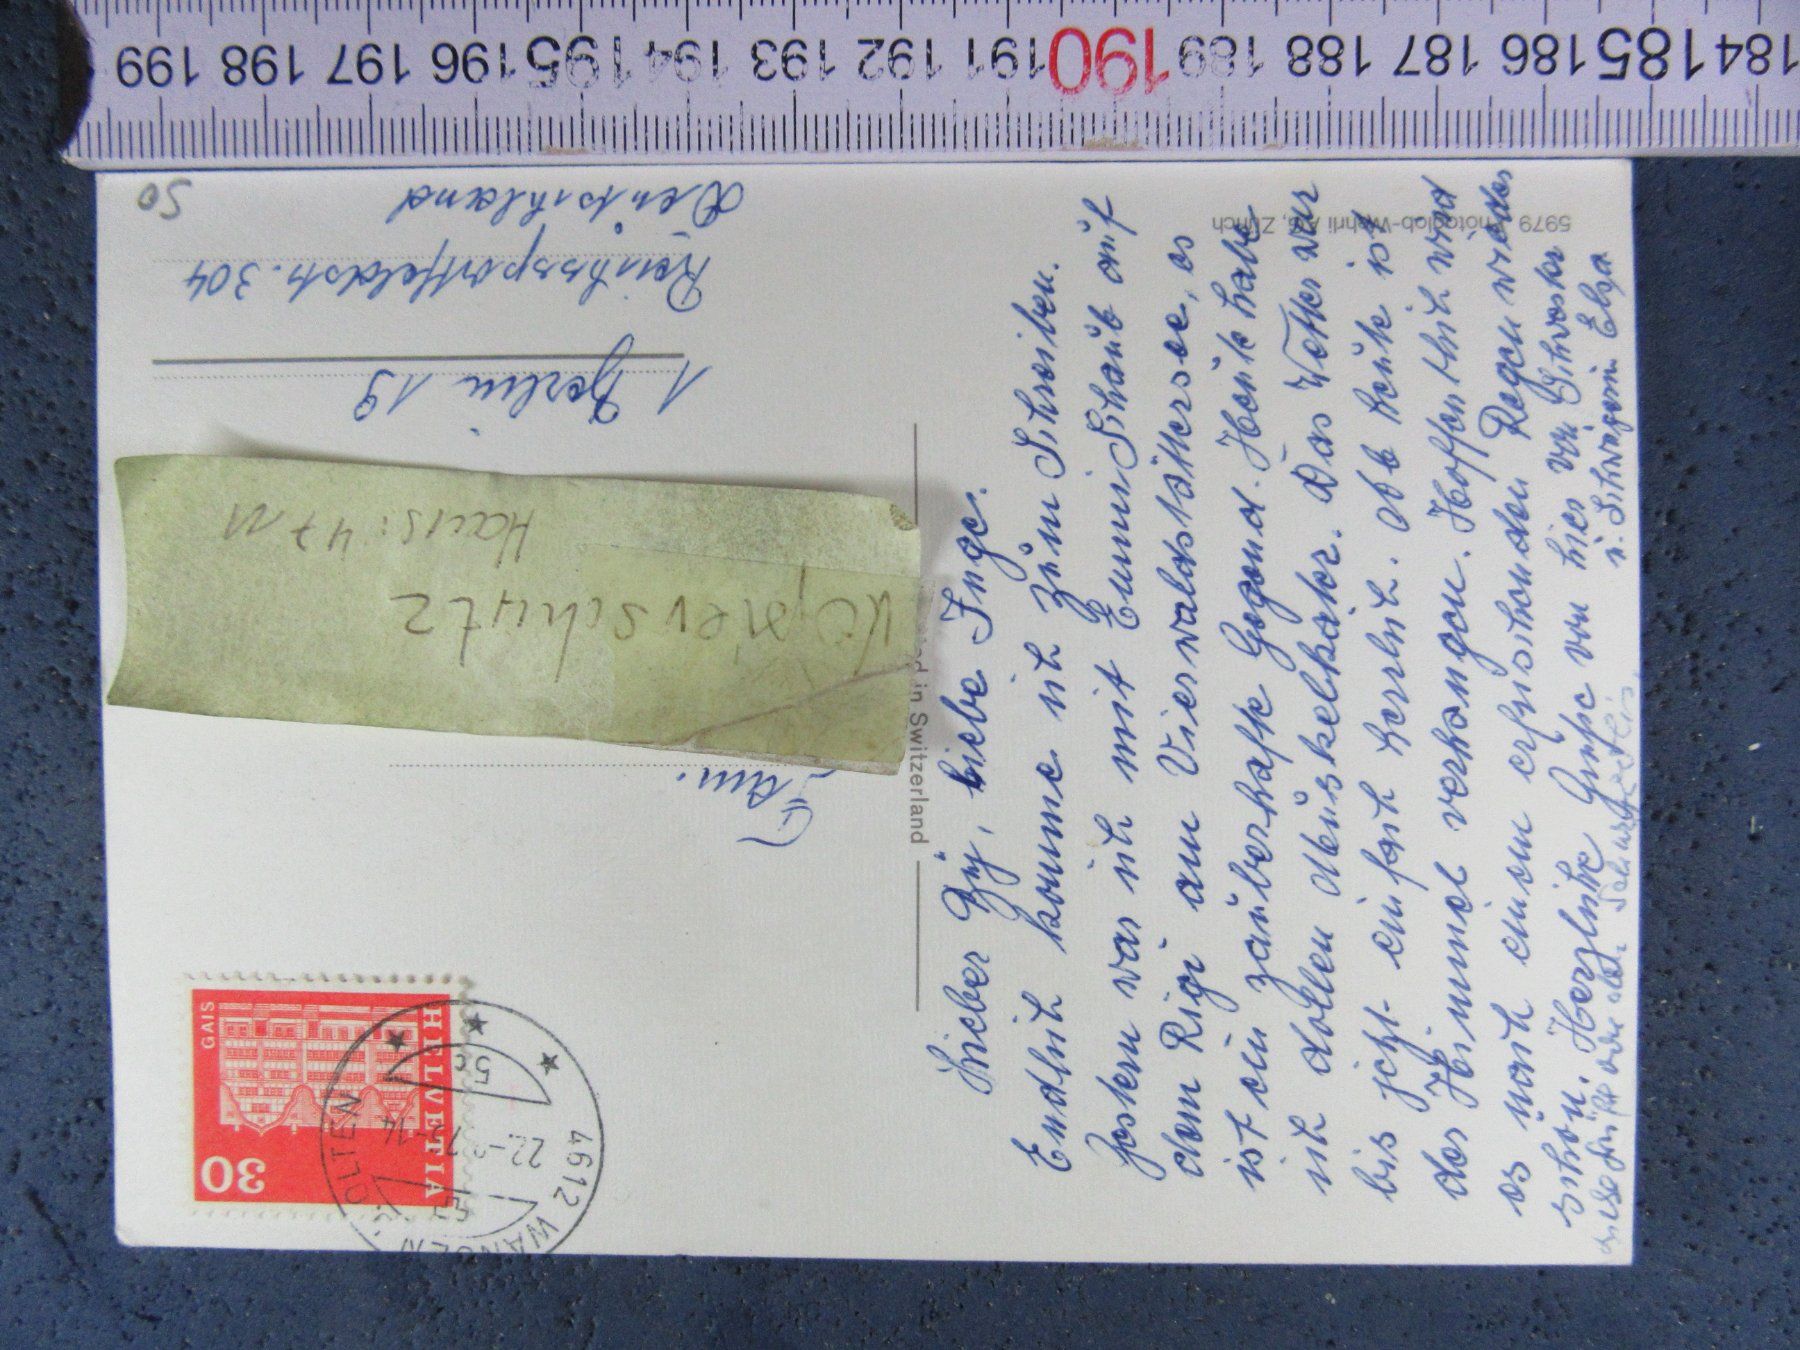 199 198 197 196 195 194 193 192 191 190 189 188 187 186 185 184
5979 Photoglob-Wehrli AG, Zürich
Lieber Guj, liebe Inge.
Endlich komme ich zum Schreiben.
Gestern war ich mit Emmi Schaub auf
dem Rigi am Vierwaldstättersee, es
ist ein zauberhafte Gegend. Heute habe
ich tollen Muskelkater. Das Wetter war
bis jetzt einfach herrlich. Ab heute ist
der Himmel verhangen. Hoffentlich wird
es nach einem erfrischenden Regen wieder
schön. Herzliche Grüße von hier von Schwester
u. Schwägerin Elsa
Made in Switzerland
HELVETIA
30
GAIS
4612 WANGEN OLTEN
22.-14
Fam.
Kclpnerschutz
Haus: 47 M
1 Berlin 19
Reichssportfeldstr. 304
Deutschland
50